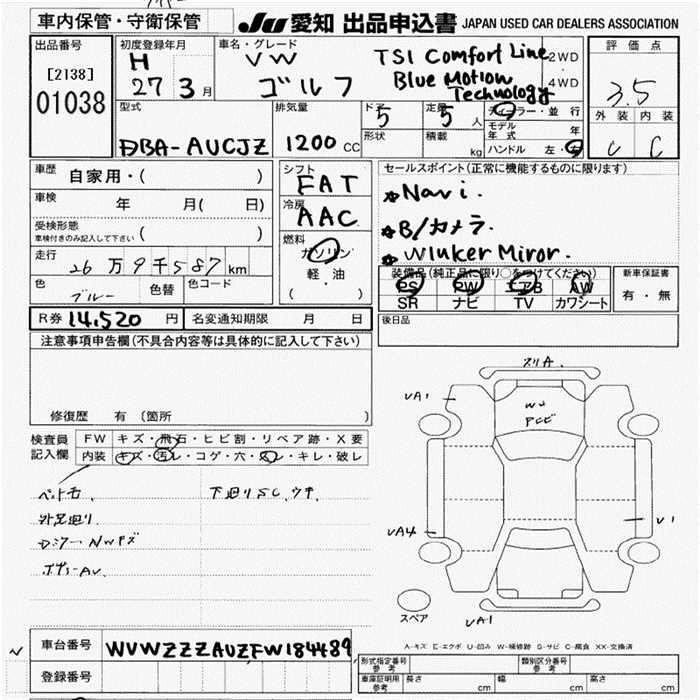 車内保管・守衛保管
JU 愛知 出品申込書 JAPAN USED CAR DEALERS ASSOCIATION
出品番号
[2138]
01038
初度登録年月
H
27 3月
車名・グレード
VW
ゴルフ
TSI Comfort Line
Blue Motion
Technology
2WD
4WD
評価点
3.5
外装 内装
C C
型式
DBA-AUCJZ
排気量
1200 CC
ドア
5
定員
5 人
形状
積載 kg
ディーラー・並行
モデル年式 年
ハンドル 左・右
車歴
自家用・( )
車検
年 月( 日)
受検形態
車検付きのみ記入して下さい ( )
走行
26万9千587km
色
ブルー
色替
色コード
シフト
FAT
冷房
AAC
燃料
ガソリン
軽・油
( )
セールスポイント(正常に機能するものに限ります)
Navi.
B/カメラ.
Wiuker Miror.
装備品(純正品に限り○をつけてください)
PS PW エアB AW
SR ナビ TV カワシート
新車保証書
有・無
R券 14,520 円
名変通知期限 月 日
後日品
注意事項申告欄(不具合内容等は具体的に記入して下さい)
修復歴 有 (箇所 )
検査員
記入欄
FW キズ・飛石・ヒビ割・リペア跡・X要
内装 キズ・汚レ・コゲ・穴・スレ・キレ・破レ
ペット毛.
下廻りSC.ウキ.
外足廻り.
ボディーAU.
スリA.
UA1
WU
アトビ
UA4
U1
UA1
スペア
A-キズ E-エクボ U-凹み W-補修跡 S-サビ C-腐食 XX-交換済
車台番号
WVWZZZAUZFW184489
登録番号
型式指定番号
参考
類別区分番号
参考
車庫証明用
参考
長さ cm
幅 cm
高さ cm